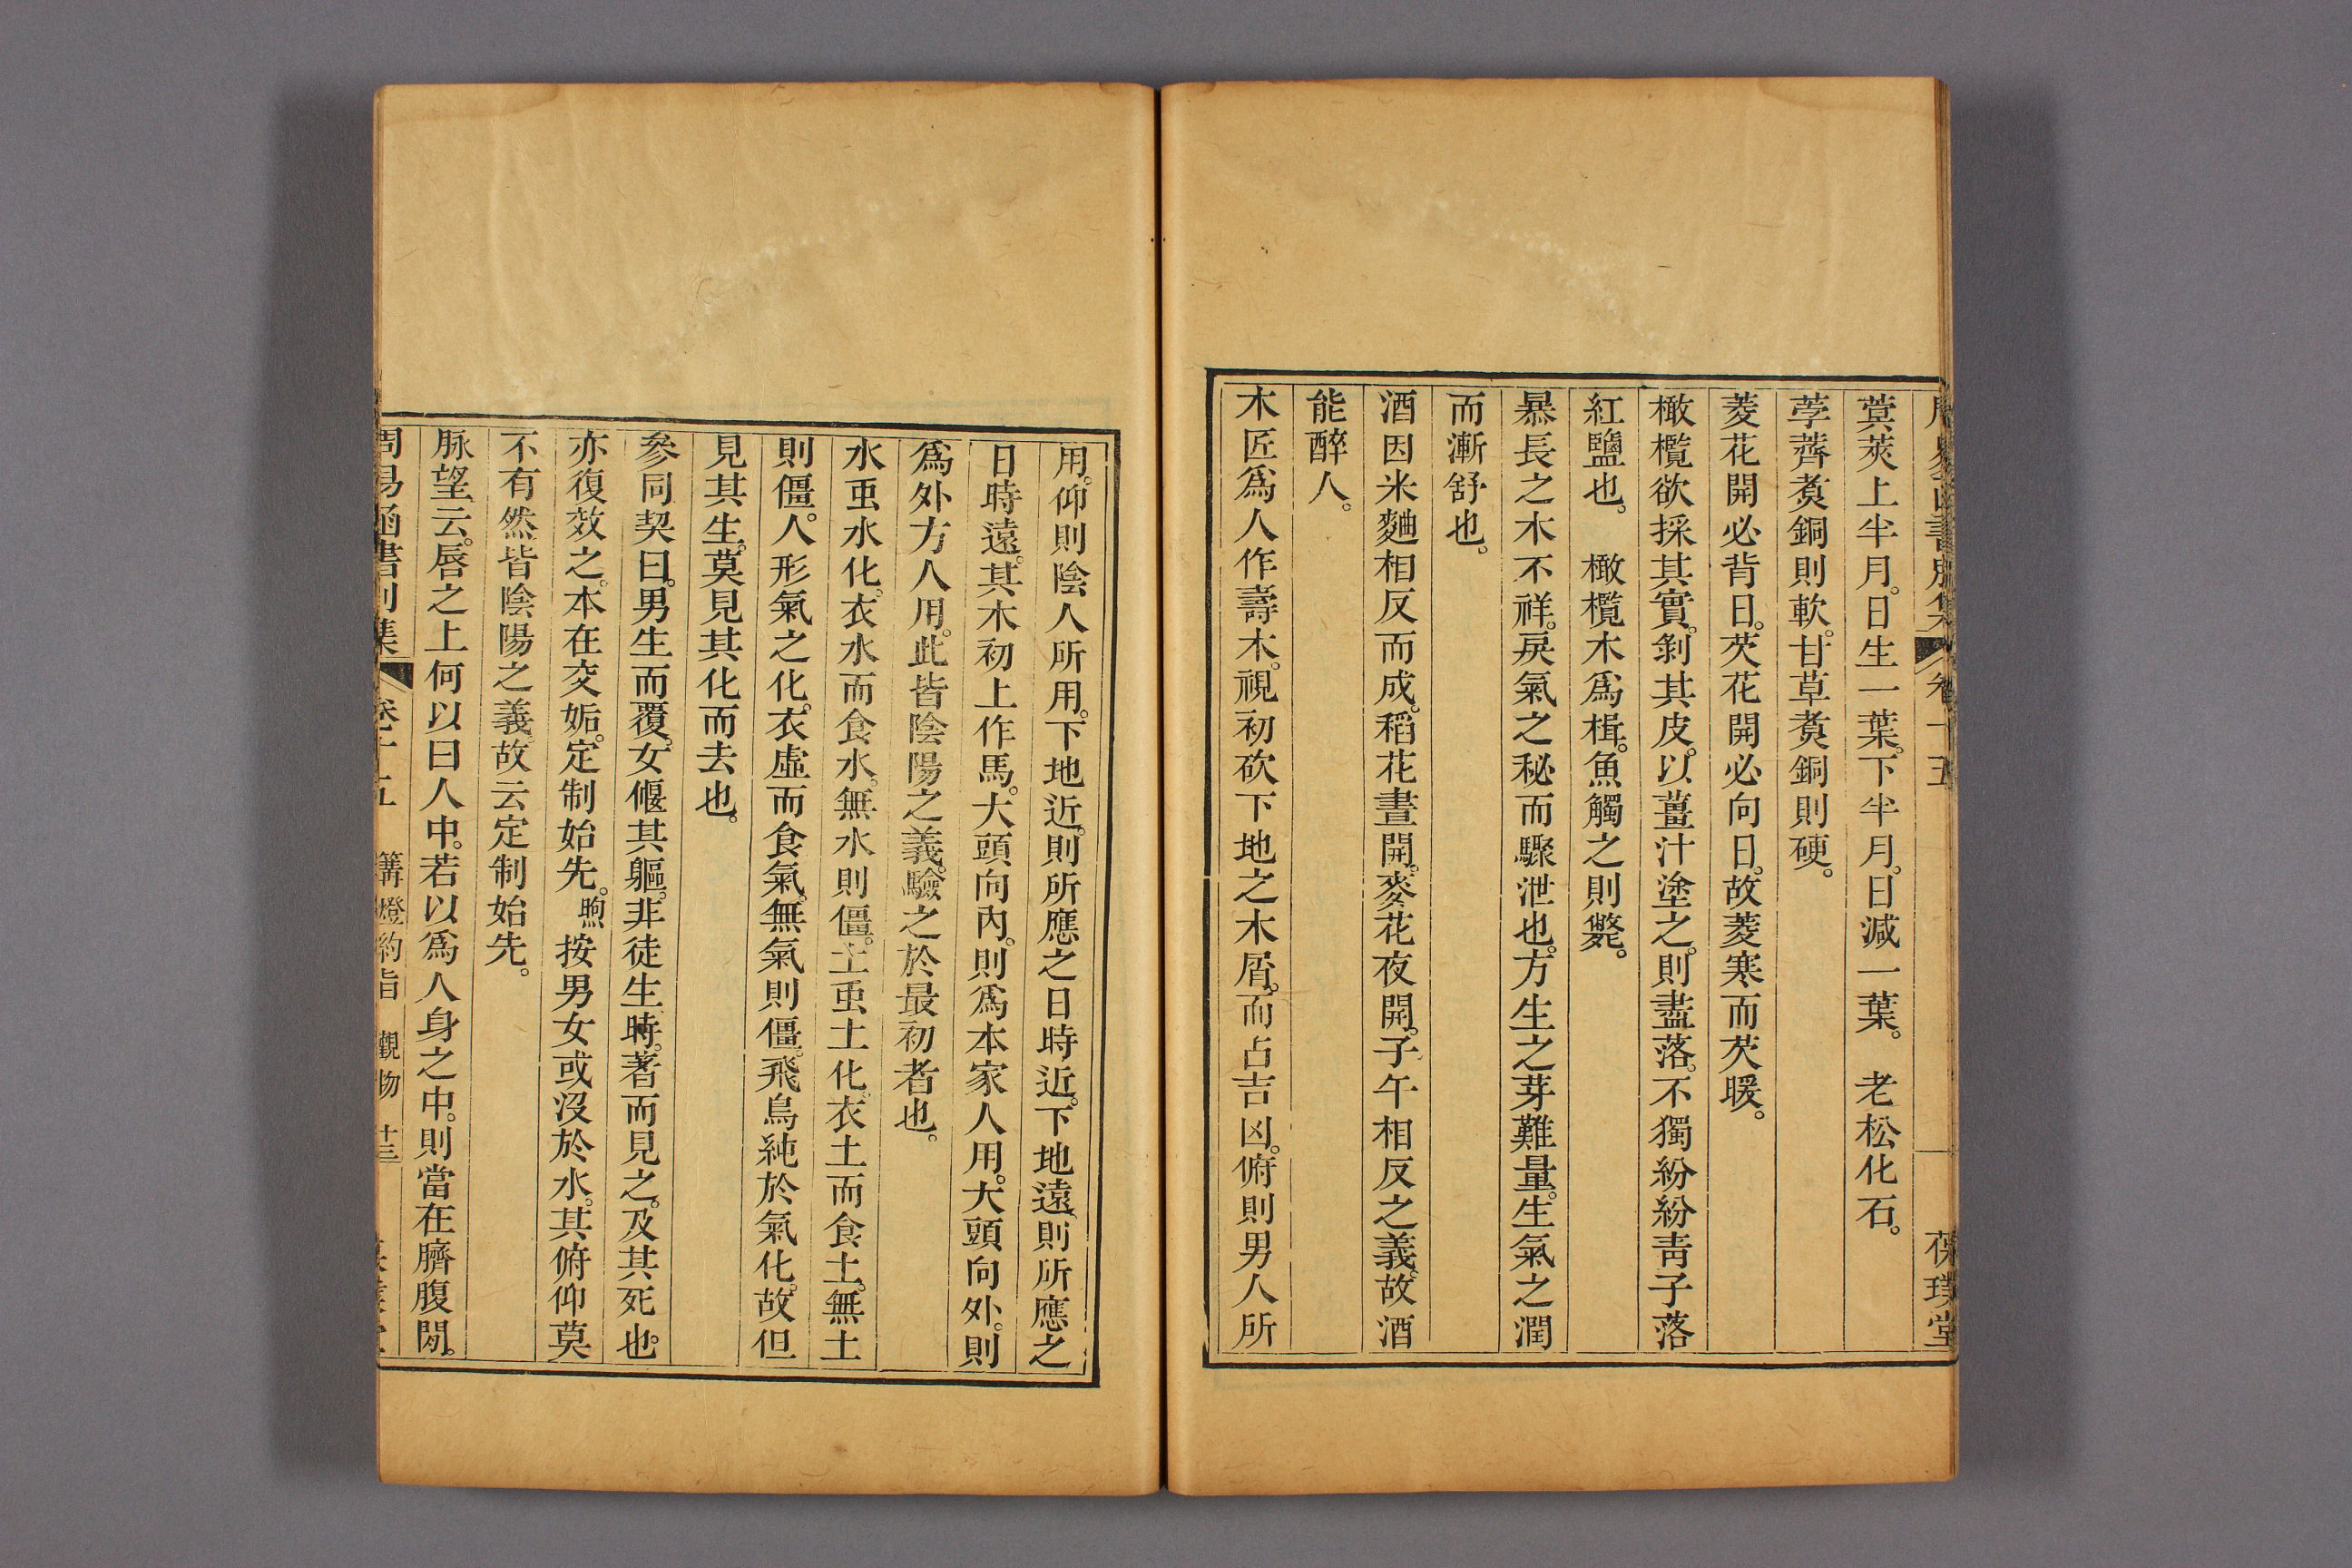 周易函書別集 卷十五 葆璞堂
蓂莢上半月。日生一葉。下半月。日減一葉。 老松化石。
荸薺煑銅則軟。甘草煑銅則硬。
菱花開必背日。芡花開必向日。故菱寒而芡暖。
橄欖欲採其實。剝其皮。以薑汁塗之。則盡落。不獨紛紛靑子落
紅鹽也。 橄欖木爲楫。魚觸之則斃。
暴長之木不祥。戾氣之秘而驟泄也。方生之芽難量。生氣之潤
而漸舒也。
酒因米麯相反而成。稻花晝開。麥花夜開。子午相反之義。故酒
能醉人。
木匠爲人作壽木。視初砍下地之木屑。而占吉凶。俯則男人所
用。仰則陰人所用。下地近。則所應之日時近。下地遠。則所應之
日時遠。其木初上作馬。大頭向內。則爲本家人用。大頭向外。則
爲外方人用。此皆陰陽之義。驗之於最初者也。
水䖝水化。衣水而食水。無水則僵。土䖝土化。衣土而食土。無土
則僵。人形氣之化。衣虛而食氣。無氣則僵。飛鳥純於氣化。故但
見其生。莫見其化而去也。
參同契曰。男生而覆。女偃其軀。非徒生時。著而見之。及其死也。
亦復效之。本在交姤。定制始先。煦按男女或沒於水。其俯仰莫
不有然。皆陰陽之義。故云定制始先。
脉望云。唇之上何以曰人中。若以爲人身之中。則當在臍腹閒。
周易函書別集 卷十五 篝燈約旨 觀物 十三